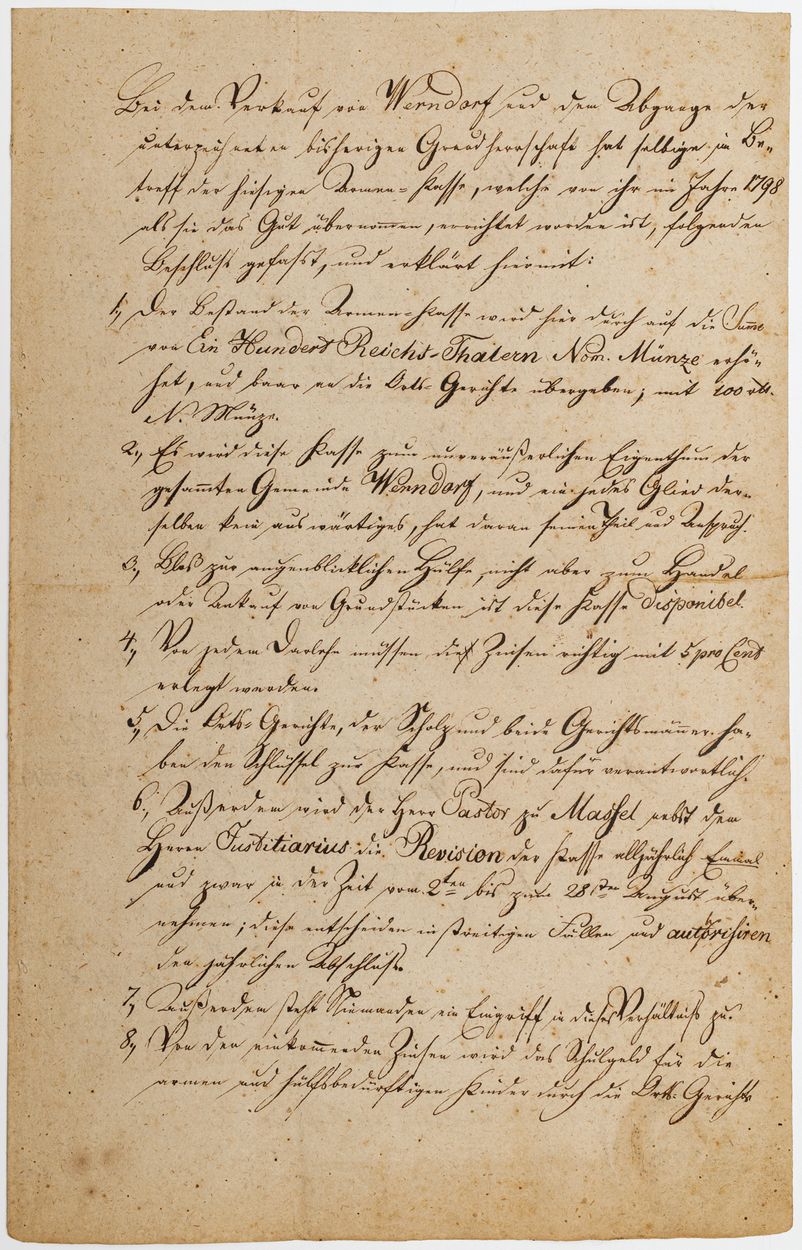 Bei dem Verkauf von Werndorf und dem Abgange der
unterzeichneten bisherigen Grundherrschaft hat selbige in Be-
treff der hiesigen Armen-Kasse, welche von ihr im Jahre 1798
als sie das Gut übernommen, errichtet worden ist, folgenden
Beschluß gefasst, und erklärt hiermit:
1., Der Bestand der Armen-Kasse wird hier durch auf die Summe
von Ein Hundert Reichs-Thalern Nom. Münze erhö-
het, und baar an die Orts-Gerichte übergeben; mit 100 rtl.
N. Münze.
2., Es wird diese Kasse zum unveräußerlichen Eigenthum der
gesammten Gemeinde Wenndorf, und ein jedes Glied der-
selben kein auswärtiges, hat daran seinen Theil und Anspruch.
3., Blos zur augenblicklichen Hülfe, nicht aber zum Handel
oder Ankauf von Grundstücken ist diese Kasse disponibel.
4., Von jedem Darlehn müssen die Zinsen richtig mit 5 pro Cent
erlegt werden.
5., Die Orts-Gerichte, der Scholz und beide Gerichtsmänner ha-
ben den Schlüssel zur Kasse, und sind dafür verantwortlich.
6., Außerdem wird der Herr Pastor zu Massel nebst dem
Herrn Justitiarius die Revision der Kasse alljährlich Einmal
und zwar in der Zeit vom 2ten bis zum 28sten August über-
nehmen; diese entscheiden in streitigen Fällen und autorisiren
den jährlichen Abschluß.
7., Außerdem steht Niemanden ein Eingriff in dieses Verhältniß zu.
8., Von den einkommenden Zinsen wird das Schulgeld für die
armen und hülfsbedürftigen Kinder durch die Orts-Gerichte